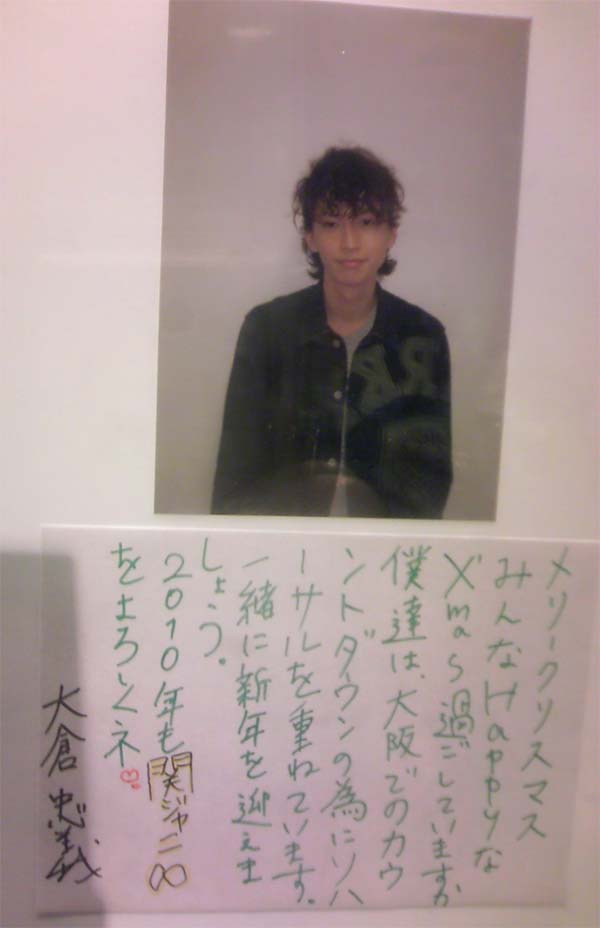 メリークリスマス
みんなHappyな
Xmas過ごしていますか
僕達は、大阪でのカウ
ントダウンの為にリハ
ーサルを重ねています。
一緒に新年を迎えま
しょう。
2010年も関ジャニ∞
をよろしくネ♡
大倉忠義
RK